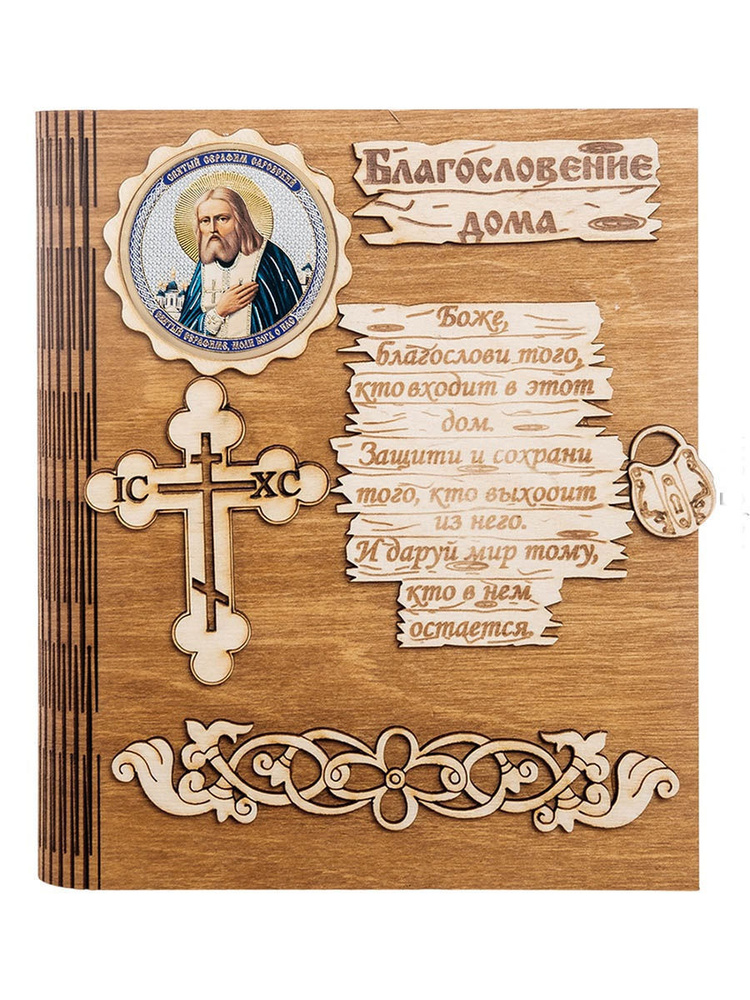 СВЯТЫЙ СЕРАФИМ САРОВСКИЙ
СВЯТЫЙ СЕРАФИМЕ, МОЛИ БОГА О НАС
Благословение
дома
IC XC
Боже,
благослови того,
кто входит в этот
дом.
Защити и сохрани
того, кто выходит
из него.
И даруй мир тому,
кто в нем
остается.